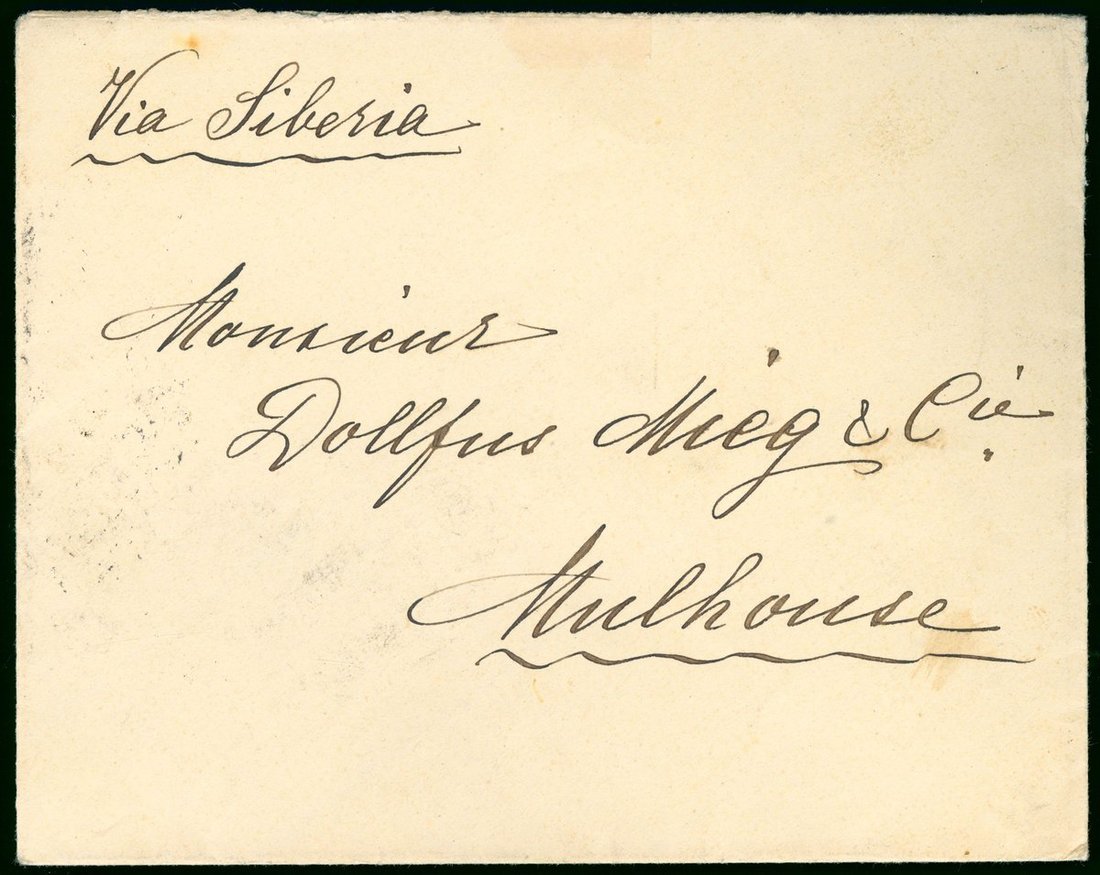 Via Siberia
Monsieur
Dollfus Mieg & Cie
Mulhouse